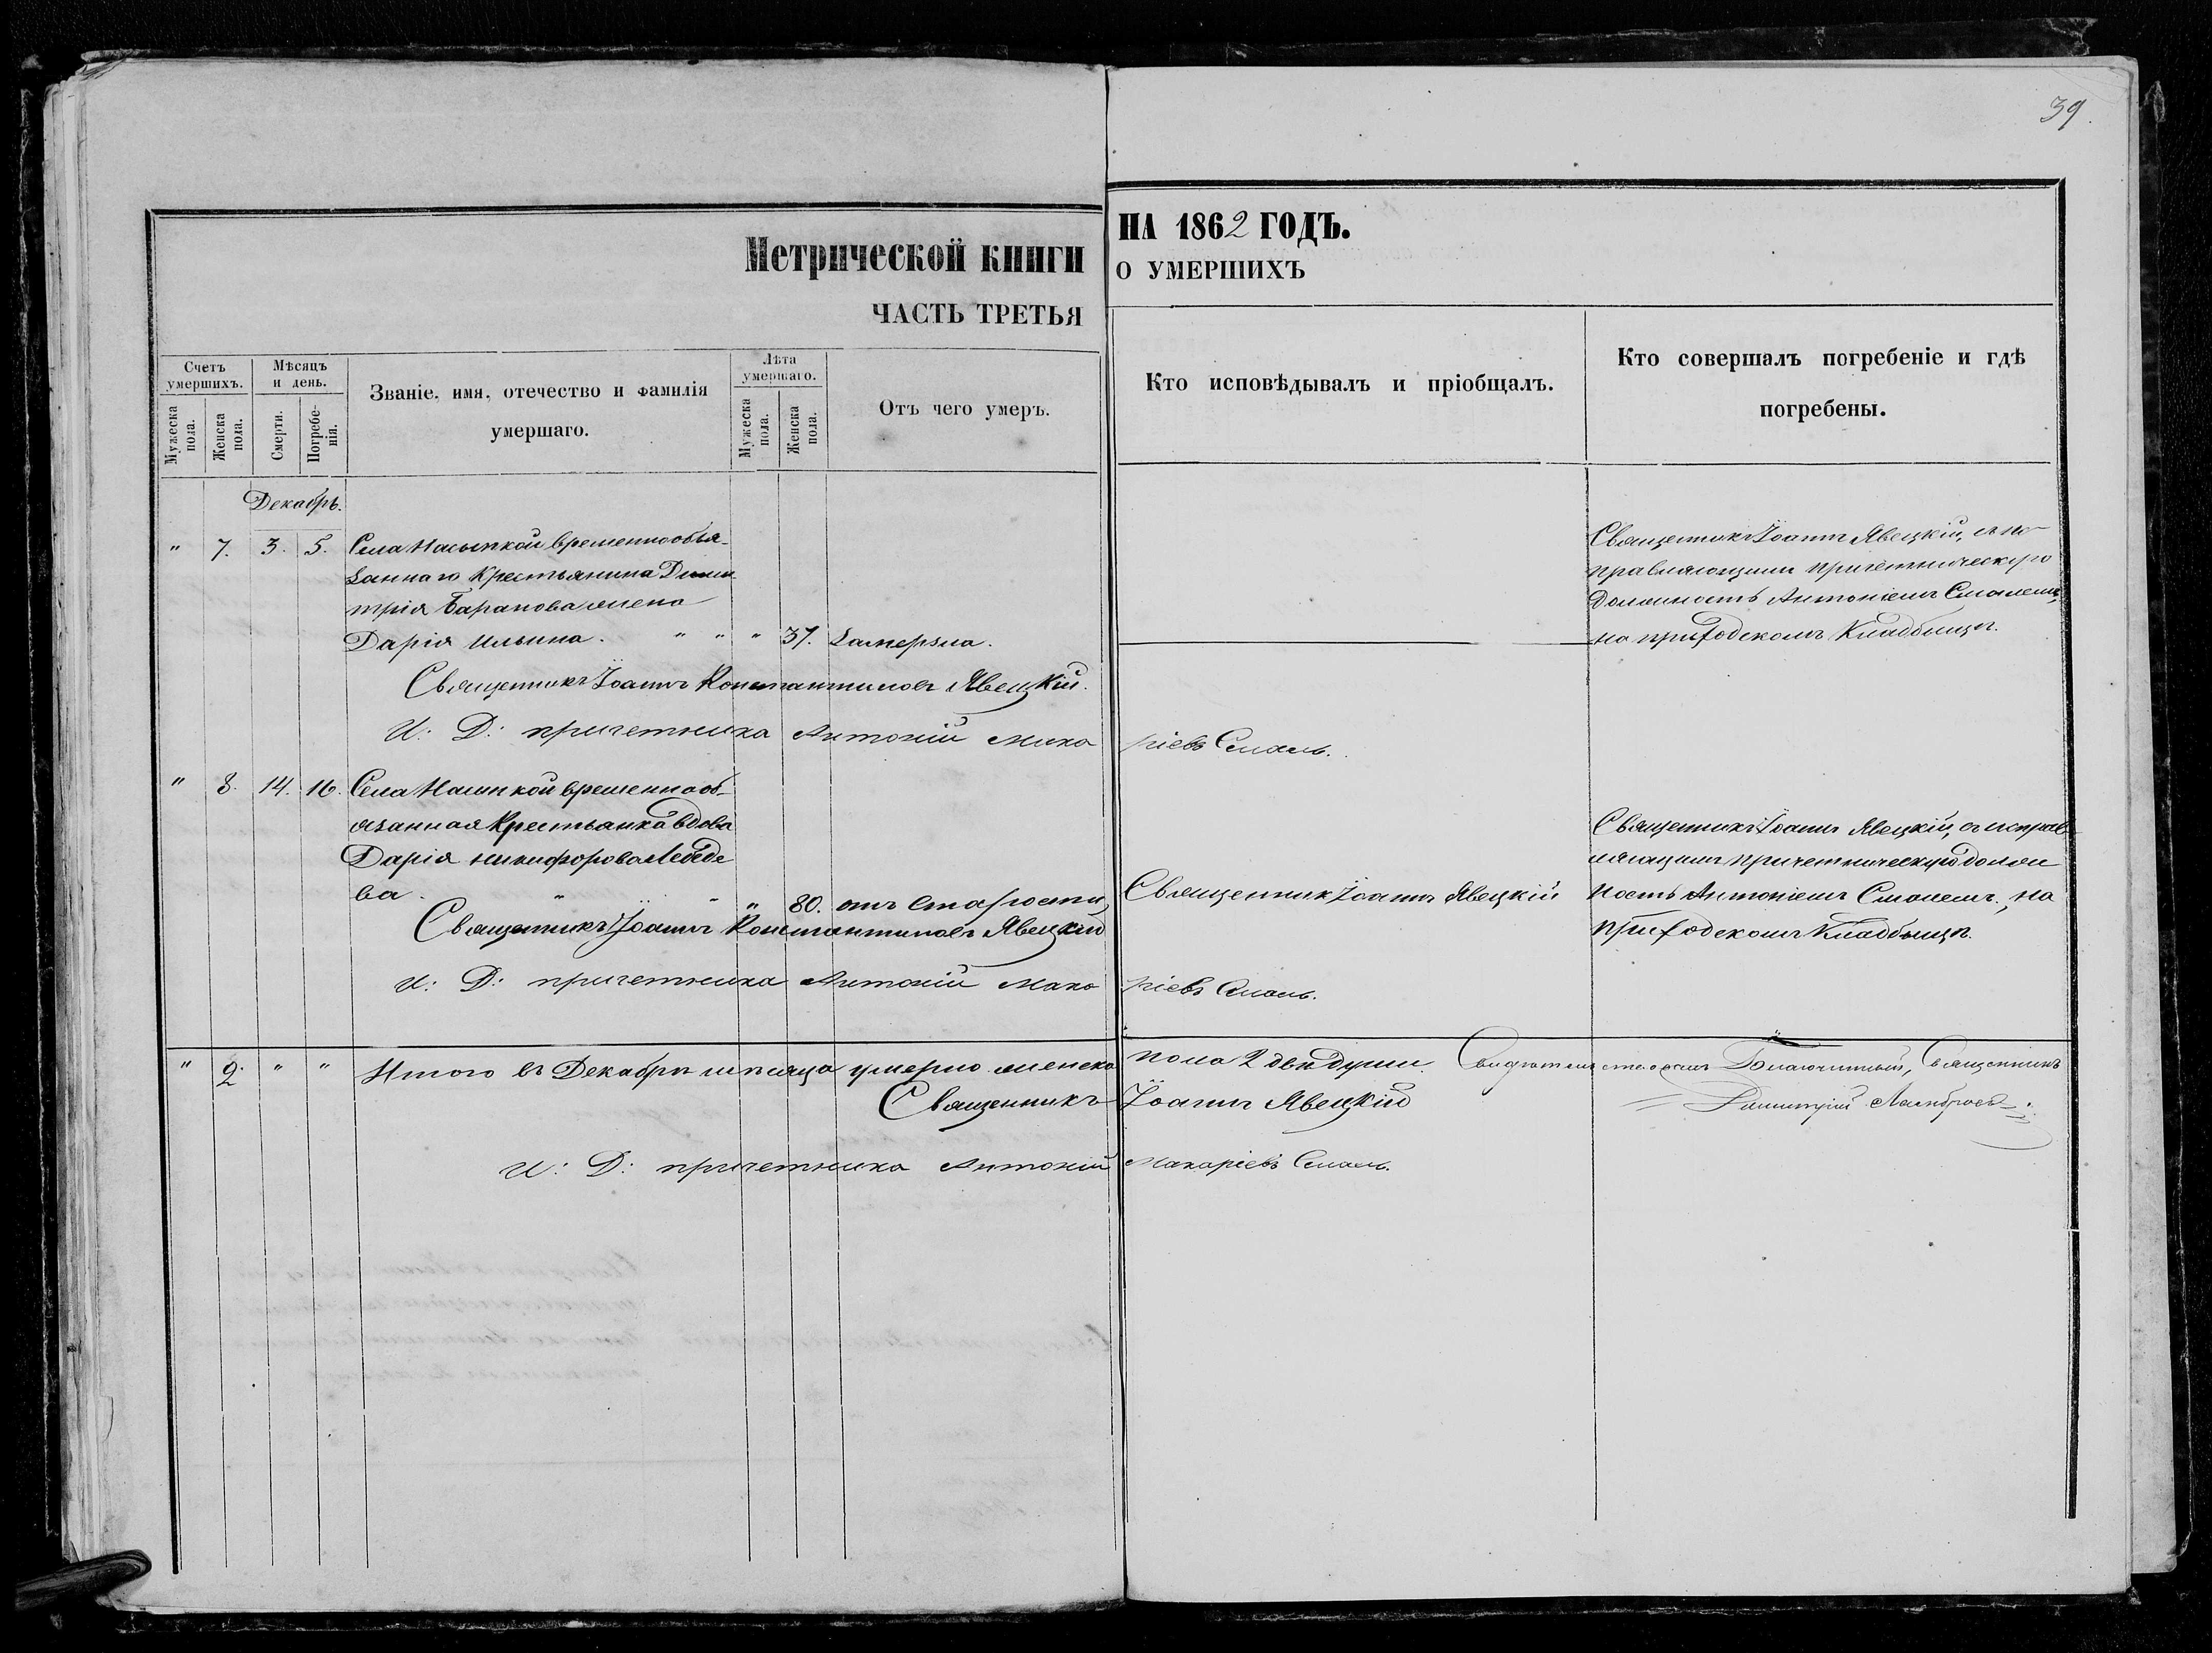 39.
Метрической книги
НА 1862 ГОДЪ.
ЧАСТЬ ТРЕТЬЯ
О УМЕРШИХЪ
Счетъ умершихъ.
Мужеска пола.
Женска пола.
Мѣсяцъ и день.
Смерти.
Погребенія.
Званіе, имя, отечество и фамилія
умершаго.
Лѣта умершаго.
Мужеска пола.
Женска пола.
Отъ чего умеръ.
Кто исповѣдывалъ и пріобщалъ.
Кто совершалъ погребеніе и гдѣ
погребены.
Декабрь.
" 7. 3. 5. Села Насыпкой временнообя-
заннаго Крестьянина Дими-
трія Баранова жена
Дарія Ильина. " " " 37. Замерзла.
Священникъ Іоаннъ Явецкій, съ ис-
правляющимъ причетническую
должность Антоніемъ Смалемъ,
на приходскомъ Кладбищѣ.
Священникъ Іоаннъ Константиновъ Явецкій.
И: Д: причетника Антоній Макаріевъ Смаль.
" 8. 14. 16. Села Насыпкой временноо-
язанная Крестьянка вдова
Дарія Никифорова Лебеде
ва. " " " 80. отъ старости,
Священникъ Іоаннъ Явецкій
Священникъ Іоаннъ Явецкій, съ исправ
ляющимъ причетническую долж
ность Антоніемъ Смалемъ, на
приходскомъ Кладбищѣ.
Священникъ Іоаннъ Константиновъ Явецкій
И: Д: причетника Антоній Макаріевъ Смаль.
" 2. " " Итого въ Декабрѣ мѣсяцѣ умерло женска пола 2 двѣ души.
Священникъ Іоаннъ Явецкій
И: Д: причетника Антоній Макаріевъ Смаль.
Благочинный, Священникъ
Димитрій